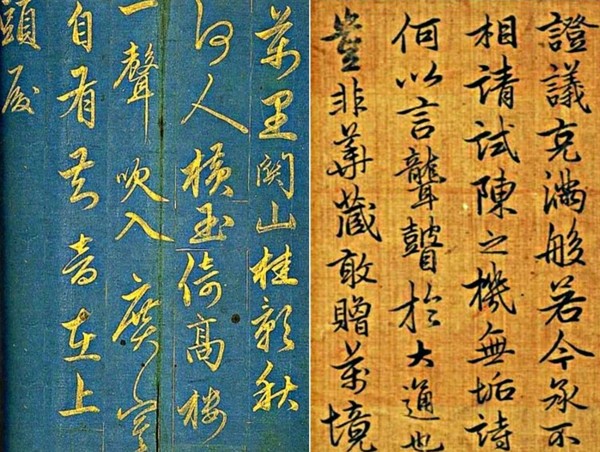 萬里関山桂影秋
何人橫玉倚高樓
一聲吹入廣寒
自有知音在上
頭殿
證議充滿般若今承不
相請試陳之機無垢詩
何以言聾瞽於大通也
豈非華藏敢贈萬境